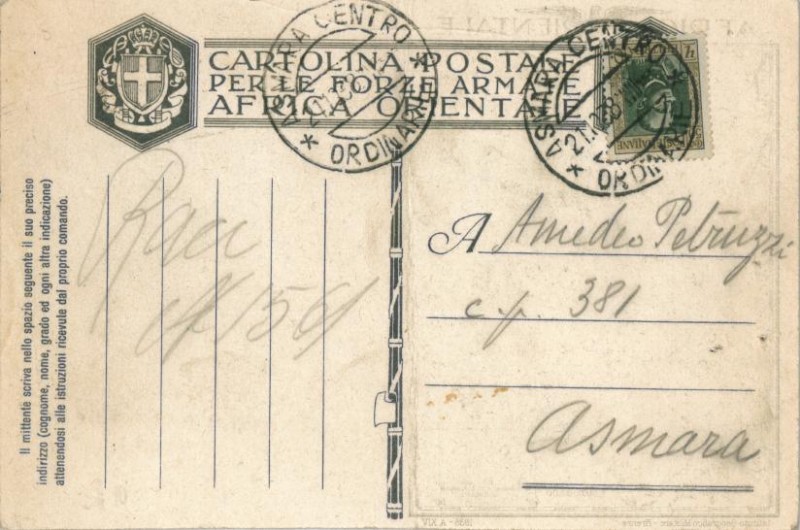 FERT
CARTOLINA POSTALE
PER LE FORZE ARMATE
AFRICA ORIENTALE
ASMARA CENTRO
ORDINARIE
ASMARA CENTRO
ORDINARIE
Il mittente scriva nello spazio seguente il suo preciso
indirizzo (cognome, nome, grado ed ogni altra indicazione)
attenendosi alle istruzioni ricevute dal proprio comando.
A Amedeo Petruzzi
c.p. 381
Asmara